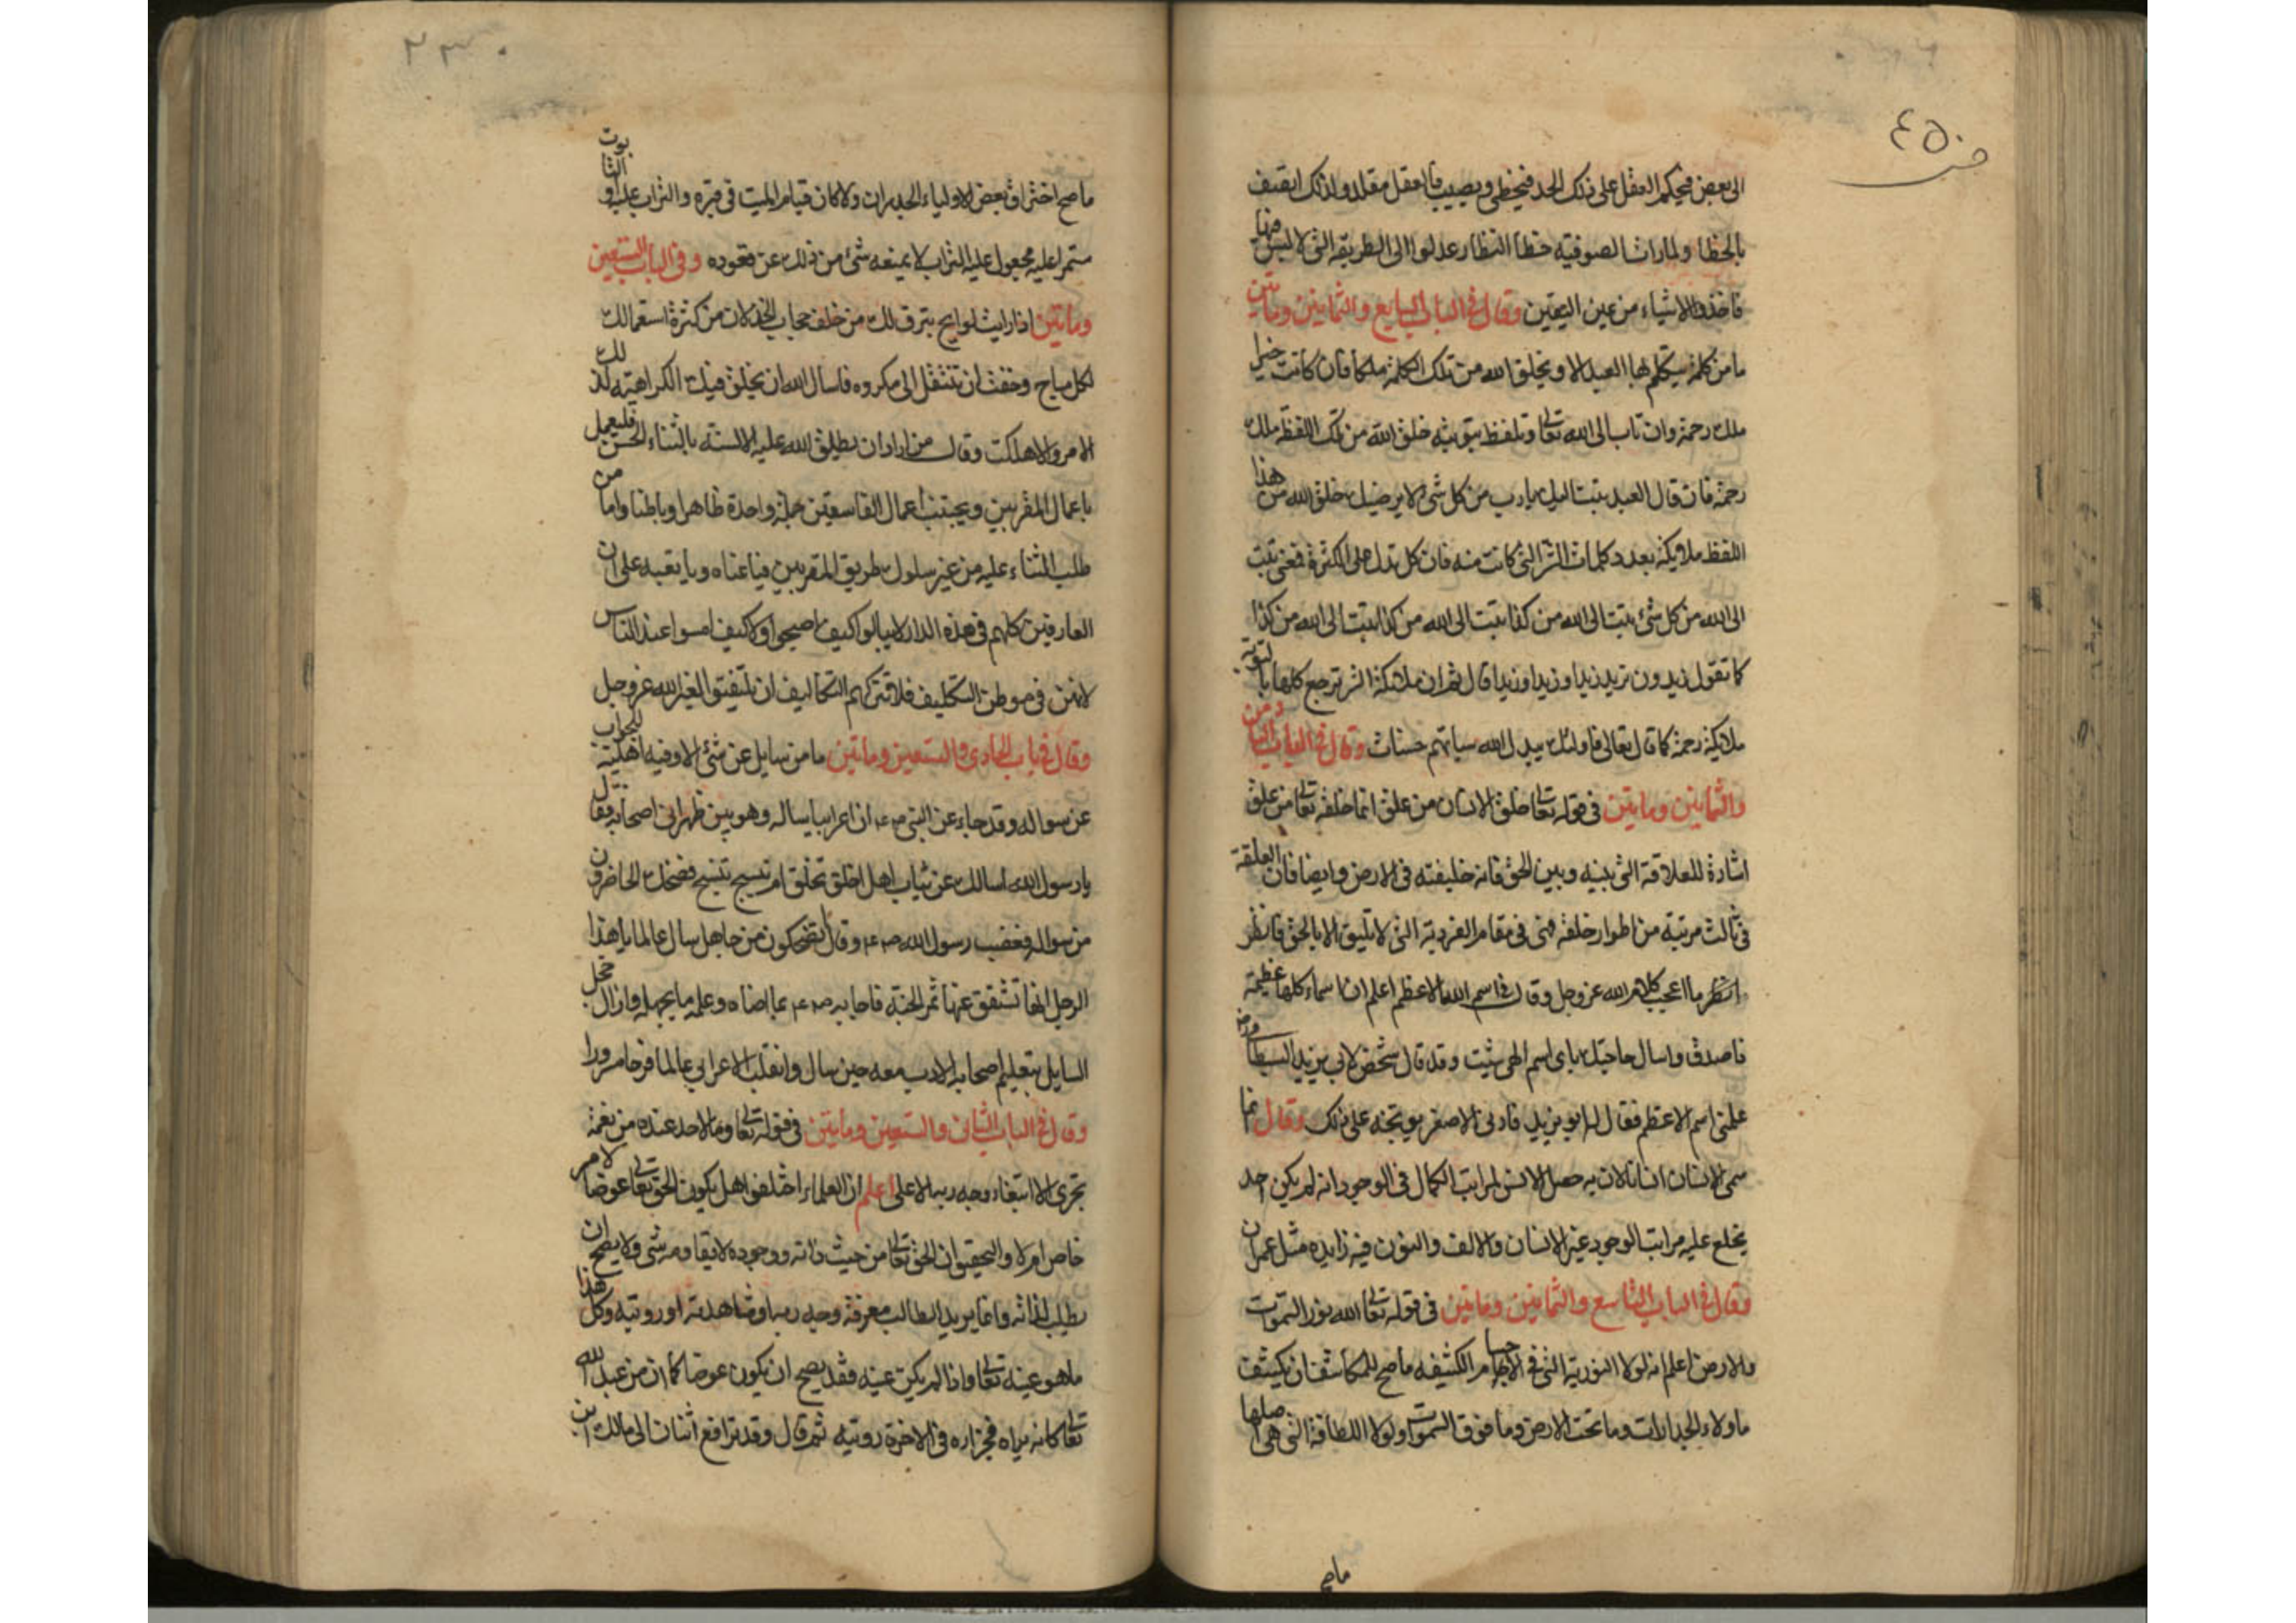 ٤٥٠
الى بعض فيحكم العقل على ذلك الحد فيخطى ويصيب فالعقل مقلد ولذلك اتصف
بالخطا ولما رات الصوفيه خطا النظار عدلوا الى الطريقه التي لا لبس فيها
فاخذوا الاشياء من عين اليقين وقال في الباب السابع والثمانين وماتين
ما من كلمة يتكلم بها العبد الا ويخلق الله من تلك الكلمة ملكا فان كانت خيرا
ملك رحمة وان تاب الى الله تعالى وتلفظ بتوبته خلق الله من تلك اللفظه ملك
رحمة فان قال العبد تبت اليك يارب من كل شئ لا يرضيك خلق الله من هذا
اللفظ ملايكة بعدد كلمات الشر التي كانت منه فان كل تدل على الكثرة فمعنى تبت
الى الله من كل شئ تبت الى الله من كذا تبت الى الله من كذا تبت الى الله من كذا
كما تقول زيدون تريد زيدا وزيدا وزيدا قال ثم ان ملائكة الشر ترجع كلها بالتوبة
ملائكة رحمة كما قال تعالى فاولئك يبدل الله سياتهم حسنات وقال في الباب الثامن
والثمانين وماتين في قوله تعالى خلق الانسان من علق انما خلقه تعالى من علق
اشارة للعلاقة التي بينه وبين الحق فانه خليفته في الارض وايضا فان العلقة
في ثالث مرتبة من اطوار خلقه فهى في مقام الفرديه التي لا تليق الا بالحق فانظر
انظر ما اعجب كلام الله عز وجل وقال في اسم الله الاعظم اعلم ان اسماء كلها عظيمة
فاصدق واسال حاجتك باى اسم الهى شئت وقد قال شخص لابي يزيد البسطامى
علمني اسم الاعظم فقال له ابو يزيد فادنى الاصغر يوبخه على ذلك وقال انما
سمى الانسان انسانا لان به حصل الانس لمراتب الكمال في الوجود انه لم يكن احد
يخلع عليه مراتب الوجود غير الانسان والالف والنون فيه زايده مثل عمران
وقال في الباب التاسع والثمانين وماتين في قوله تعالى الله نور السموات
والارض اعلم انه لولا النوريه التي في الاجسام الكشيفه ما صح للمكاشف ان يكشف
ما وراء الجدارات وما تحت الارض وما فوق السموات ولولا اللطافة التي هي اصلها
ما صح
٢٣٠
ما صح اختراق بعض الاولياء الجدران ولا كان قيام الميت في قبره والتراب عليه او التابوت
مستمرا عليه مجعول عليه التراب لا يمنعه شئ من ذلك عن قعوده وفي الباب التسعين
وماتين اذا رايت لوايح تترق لك من خلف حجاب الخذلان من كثرة استعمالك
لكل مباح وخفت ان تنتقل الى مكروه فاسال الله ان يخلق فيك الكراهة لذلك
الامر والا هلكت وقال من اراد ان يطلق الله عليه الالسنه بالثناء الحسن فليعمل
باعمال المقربين ويجتنب اعمال الفاسقين جملة واحدة ظاهرا وباطنا واما من
طلب الثناء عليه من غير سلوك طريق المقربين فياعناه ويا تعبه على ان
العارفين كلهم في هذه الدار لا يبالوا كيف اصبحوا ولا كيف امسوا عند الناس
لانهن في موطن التكليف فلا تتركهم التكاليف ان يلتفتوا لغير الله عز وجل
وقال في باب الحادى والتسعين وماتين ما من سايل عن شئ الا وفيه اهلية للجواب
عن سواله وقد جاء عن النبي صم ان اعرابيا ساله وهو بين ظهرانى اصحابه فقال
يا رسول الله اسالك عن ثياب اهل الجنة اخلق تخلق ام نسج تنسج فضحك الحاضرون
من سواله فغضب رسول الله صم وقال اتضحكون من جاهل سال عالما يا هذا
الرجل انها تشقق عنها ثمر الجنة فاجابه صم بما ارضاه وعلمه ما يجهله وازال خجل
السايل بتعليم اصحابه الادب معه حين سال وانقلب الاعرابي عالما فرحا مسرورا
وقال في الباب الثانى والتسعين وماتين في قوله تعالى وما لاحد عنده من نعمة
تجزى الا ابتغاء وجه ربه الاعلى اعلم ان العلماء اختلفوا هل يكون الحق تعالى عوضا لامر
خاص ام لا والتحقيق ان الحق تعالى من حيث ذاته ووجوده لا يقاومه شى ولا يصح ان
يطلب لذاته وانما يريد الطالب معرفة وجه ربه او مشاهدته او رويته وكل هذا
ما هو عينه تعالى واذا لم يكن عينه فقد يصح ان يكون عوضا كما ان من عبد الله
تعالى كانه يراه فجزاره في الاخرة رويته ثم قال وقد ترافع اثنان الى مالك ابن